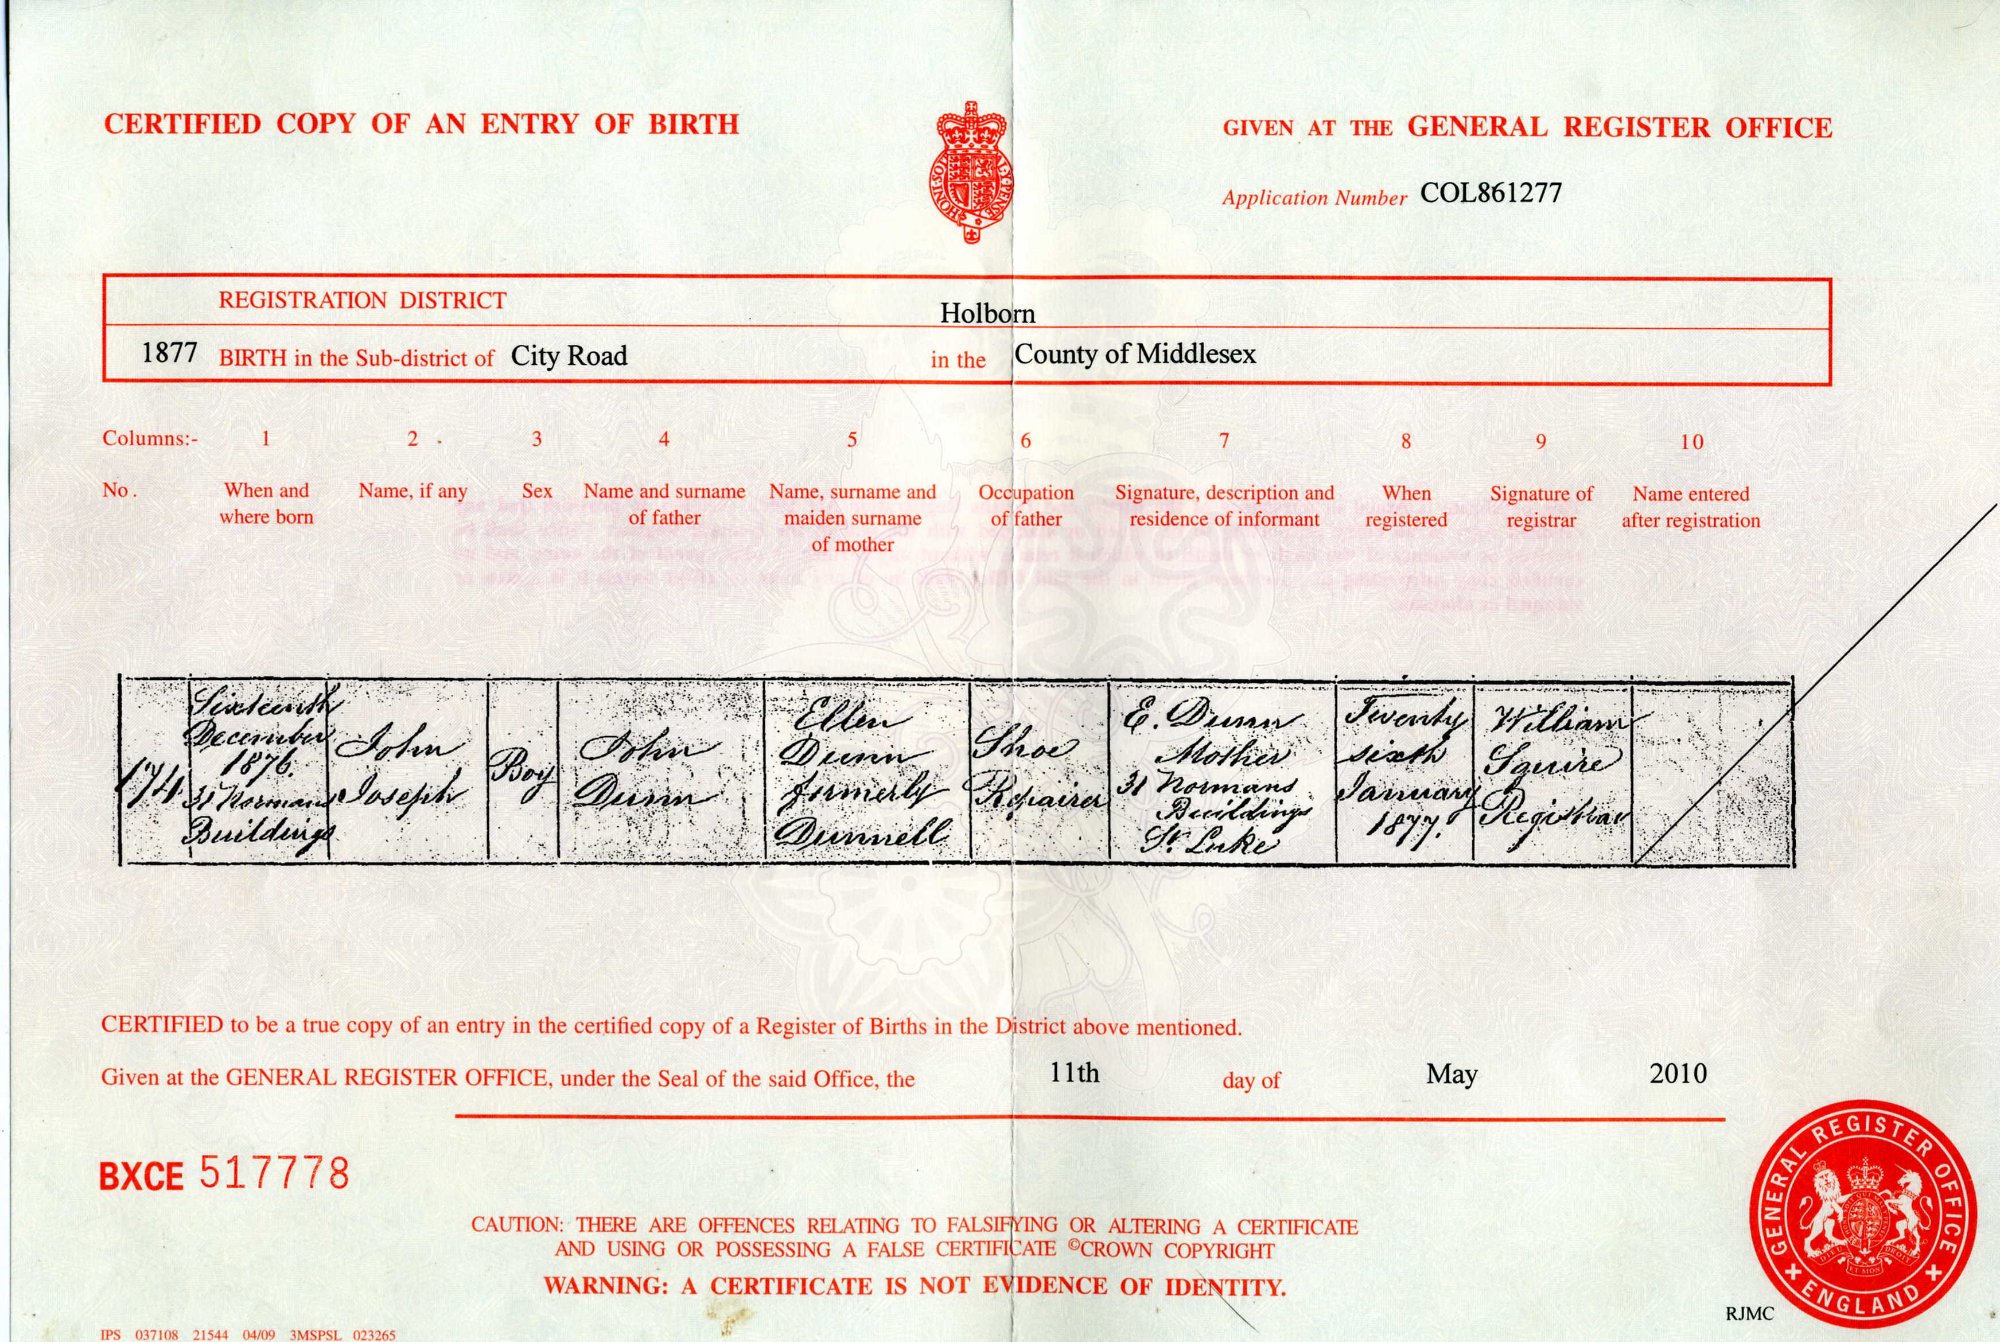 CERTIFIED COPY OF AN ENTRY OF BIRTH
GIVEN AT THE GENERAL REGISTER OFFICE
Application Number COL861277
REGISTRATION DISTRICT Holborn
1877 BIRTH in the Sub-district of City Road in the County of Middlesex
Columns:- 1 2 3 4 5 6 7 8 9 10
No.
When and
where born
Name, if any
Sex
Name and surname
of father
Name, surname and
maiden surname
of mother
Occupation
of father
Signature, description and
residence of informant
When
registered
Signature of
registrar
Name entered
after registration
174
Sixteenth
December
1876.
31 Normans
Buildings
John
Joseph
Boy
John
Dunn
Ellen
Dunn
formerly
Dunnell
Shoe
Repairer
E. Dunn
Mother
31 Normans
Buildings
St. Luke
Twenty
sixth
January
1877.
William
Squire
Registrar
CERTIFIED to be a true copy of an entry in the certified copy of a Register of Births in the District above mentioned.
Given at the GENERAL REGISTER OFFICE, under the Seal of the said Office, the 11th day of May 2010
BXCE 517778
CAUTION: THERE ARE OFFENCES RELATING TO FALSIFYING OR ALTERING A CERTIFICATE
AND USING OR POSSESSING A FALSE CERTIFICATE ©CROWN COPYRIGHT
WARNING: A CERTIFICATE IS NOT EVIDENCE OF IDENTITY.
GENERAL REGISTER OFFICE
ENGLAND
RJMC
IPS 037108 21544 04/09 3MSPSL 023265